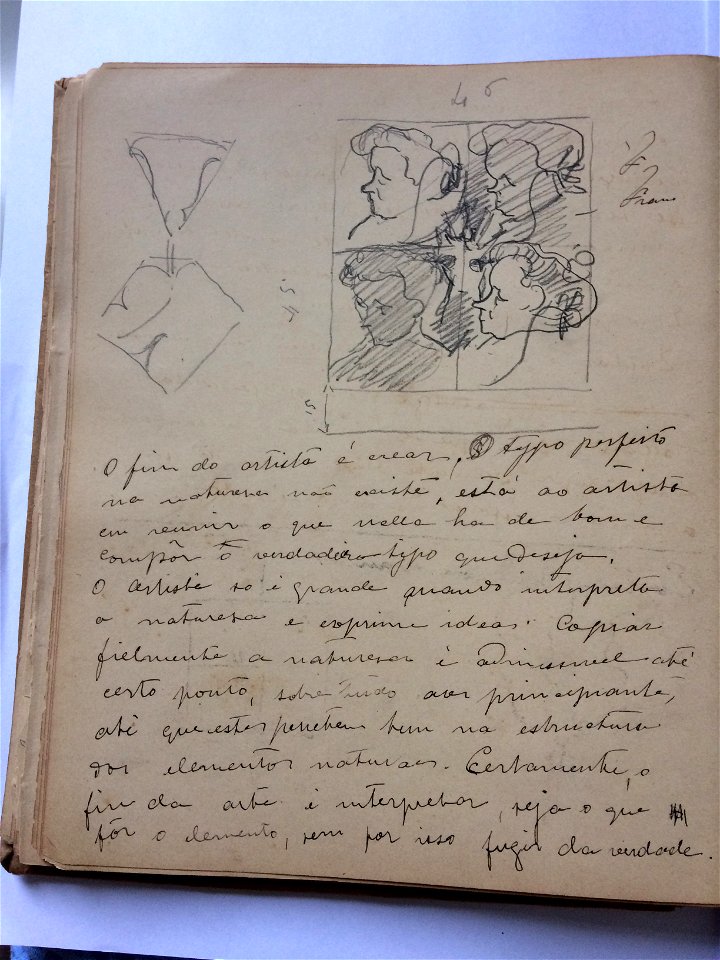 O fim do artista é crear, o typo perfeito
na naturesa não existe, está ao artista
em reunir o que nella ha de bom e
compôr o verdadeiro typo que deseja.
O artista so é grande quando interpreta
a naturesa e exprime ideas. Copiar
fielmente a naturesa é admissivel até
certo ponto, sobre tudo aos principiantes,
até que estes penetrem bem na estructura
dos elementos naturaes. Certamente, o
fim da arte é interpretar, seja o que
fôr o elemento, sem por isso fugir da verdade.